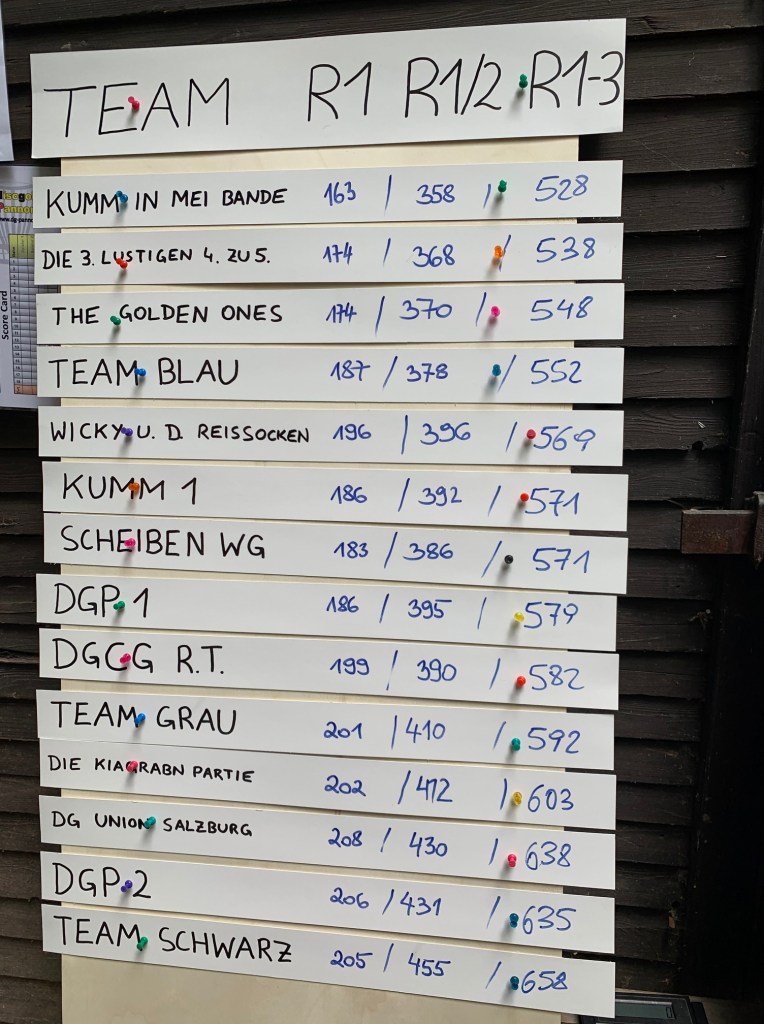 TEAM R1 R1/2 R1-3
KUMM IN MEI BANDE 163 / 358 / 528
DIE 3. LUSTIGEN 4. ZU 5. 174 / 368 / 538
THE GOLDEN ONES 174 / 370 / 548
TEAM BLAU 187 / 378 / 552
WICKY U. D. REISSOCKEN 196 / 396 / 569
KUMM 1 186 / 392 / 571
SCHEIBEN WG 183 / 386 / 571
DGP 1 186 / 395 / 579
DGCG R.T. 199 / 390 / 582
TEAM GRAU 201 / 410 / 592
DIE KIAGRABN PARTIE 202 / 412 / 603
DG UNION SALZBURG 208 / 430 / 638
DGP 2 206 / 431 / 635
TEAM SCHWARZ 205 / 455 / 658
Score Card